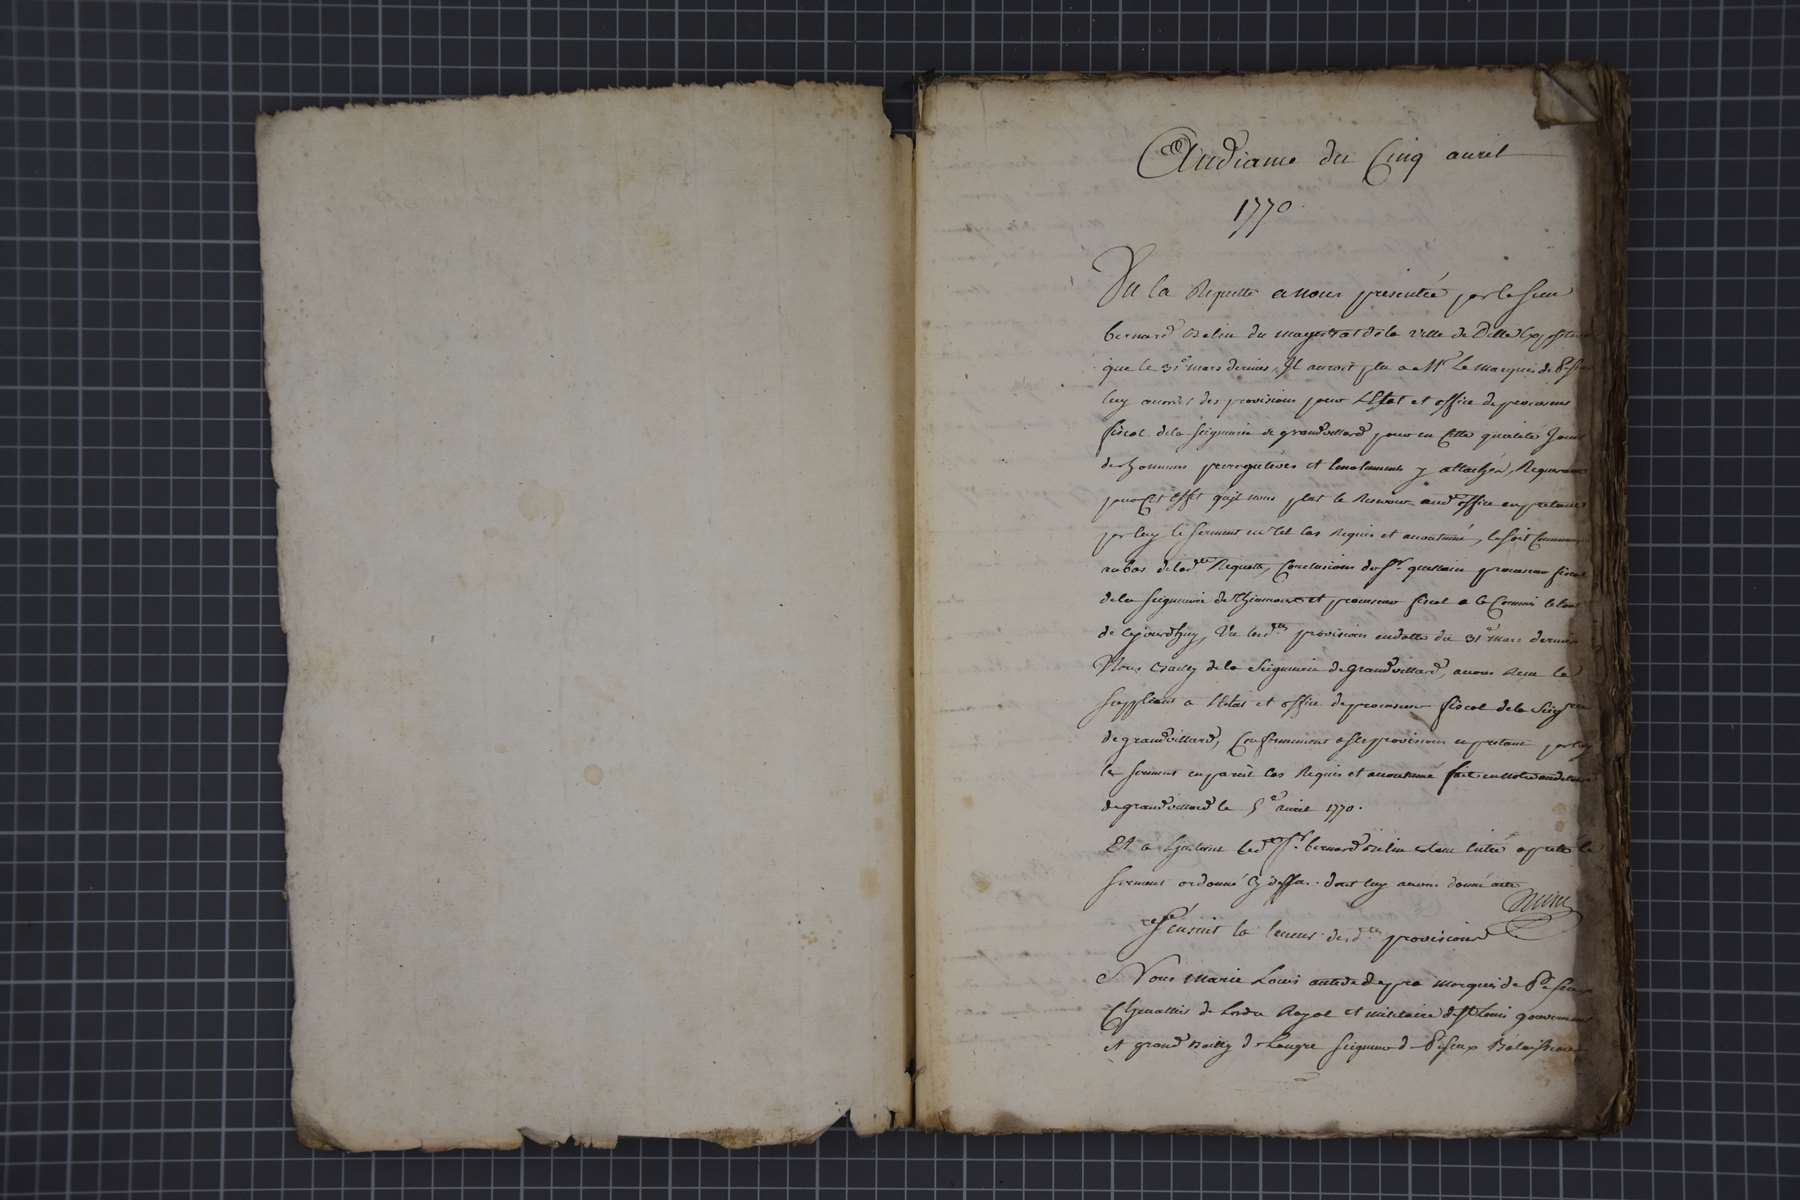 Audiance du Cinq auril
1770.
Vu la Requette a nous presentée par le sieur
bernard Belin du magistrat de la ville de Delle Expositive
que le 31e mars dernier, Il auroit plu a Mr Le Marquis de Peseux
luy accorder des provisions pour L'Etat et office de procureur
fiscal de la seigneurie de grandvillard pour en Cette qualité Jouir
des honneurs prerogatives et Emolumens y attachés, Requerant
pour Cet effet qu'jl nous plut le Recevoir aud. office en pretant
par luy le serment en tel Cas Requis et accoutumé, le soit Communiqué
au bas de lad.te Requette, Conclusions du Sr. procureur fiscal
de la seigneurie de et procureur fiscal a le Commis
de Cejourdhuy, Vu lesd.tes provisions en datte du 31e mars dernier
Nous Bailly de la Seigneurie de grandvillard, auons Reçu le
suppliant a l'Etat et office de procureur fiscal de la Seig.rie
de grandvillard, Conformement a ses provisions en pretant par luy
le serment en pareil Cas Requis et accoutumé fait en notre audiance
de grandvillard le 5e auril 1770.
Et a L'jnstant led. Sr. bernard Belin Estant Entré a preté le
serment ordonné Cy dessus dont luy auons donné acte
S'ensuit la teneur desd.tes provisions
Nous Marie Louis marquis de Peseux
Chevallier de Lordre Royal et militaire de St Louis gouverneur
et grand Bailly de Langre seigneur de Peseux